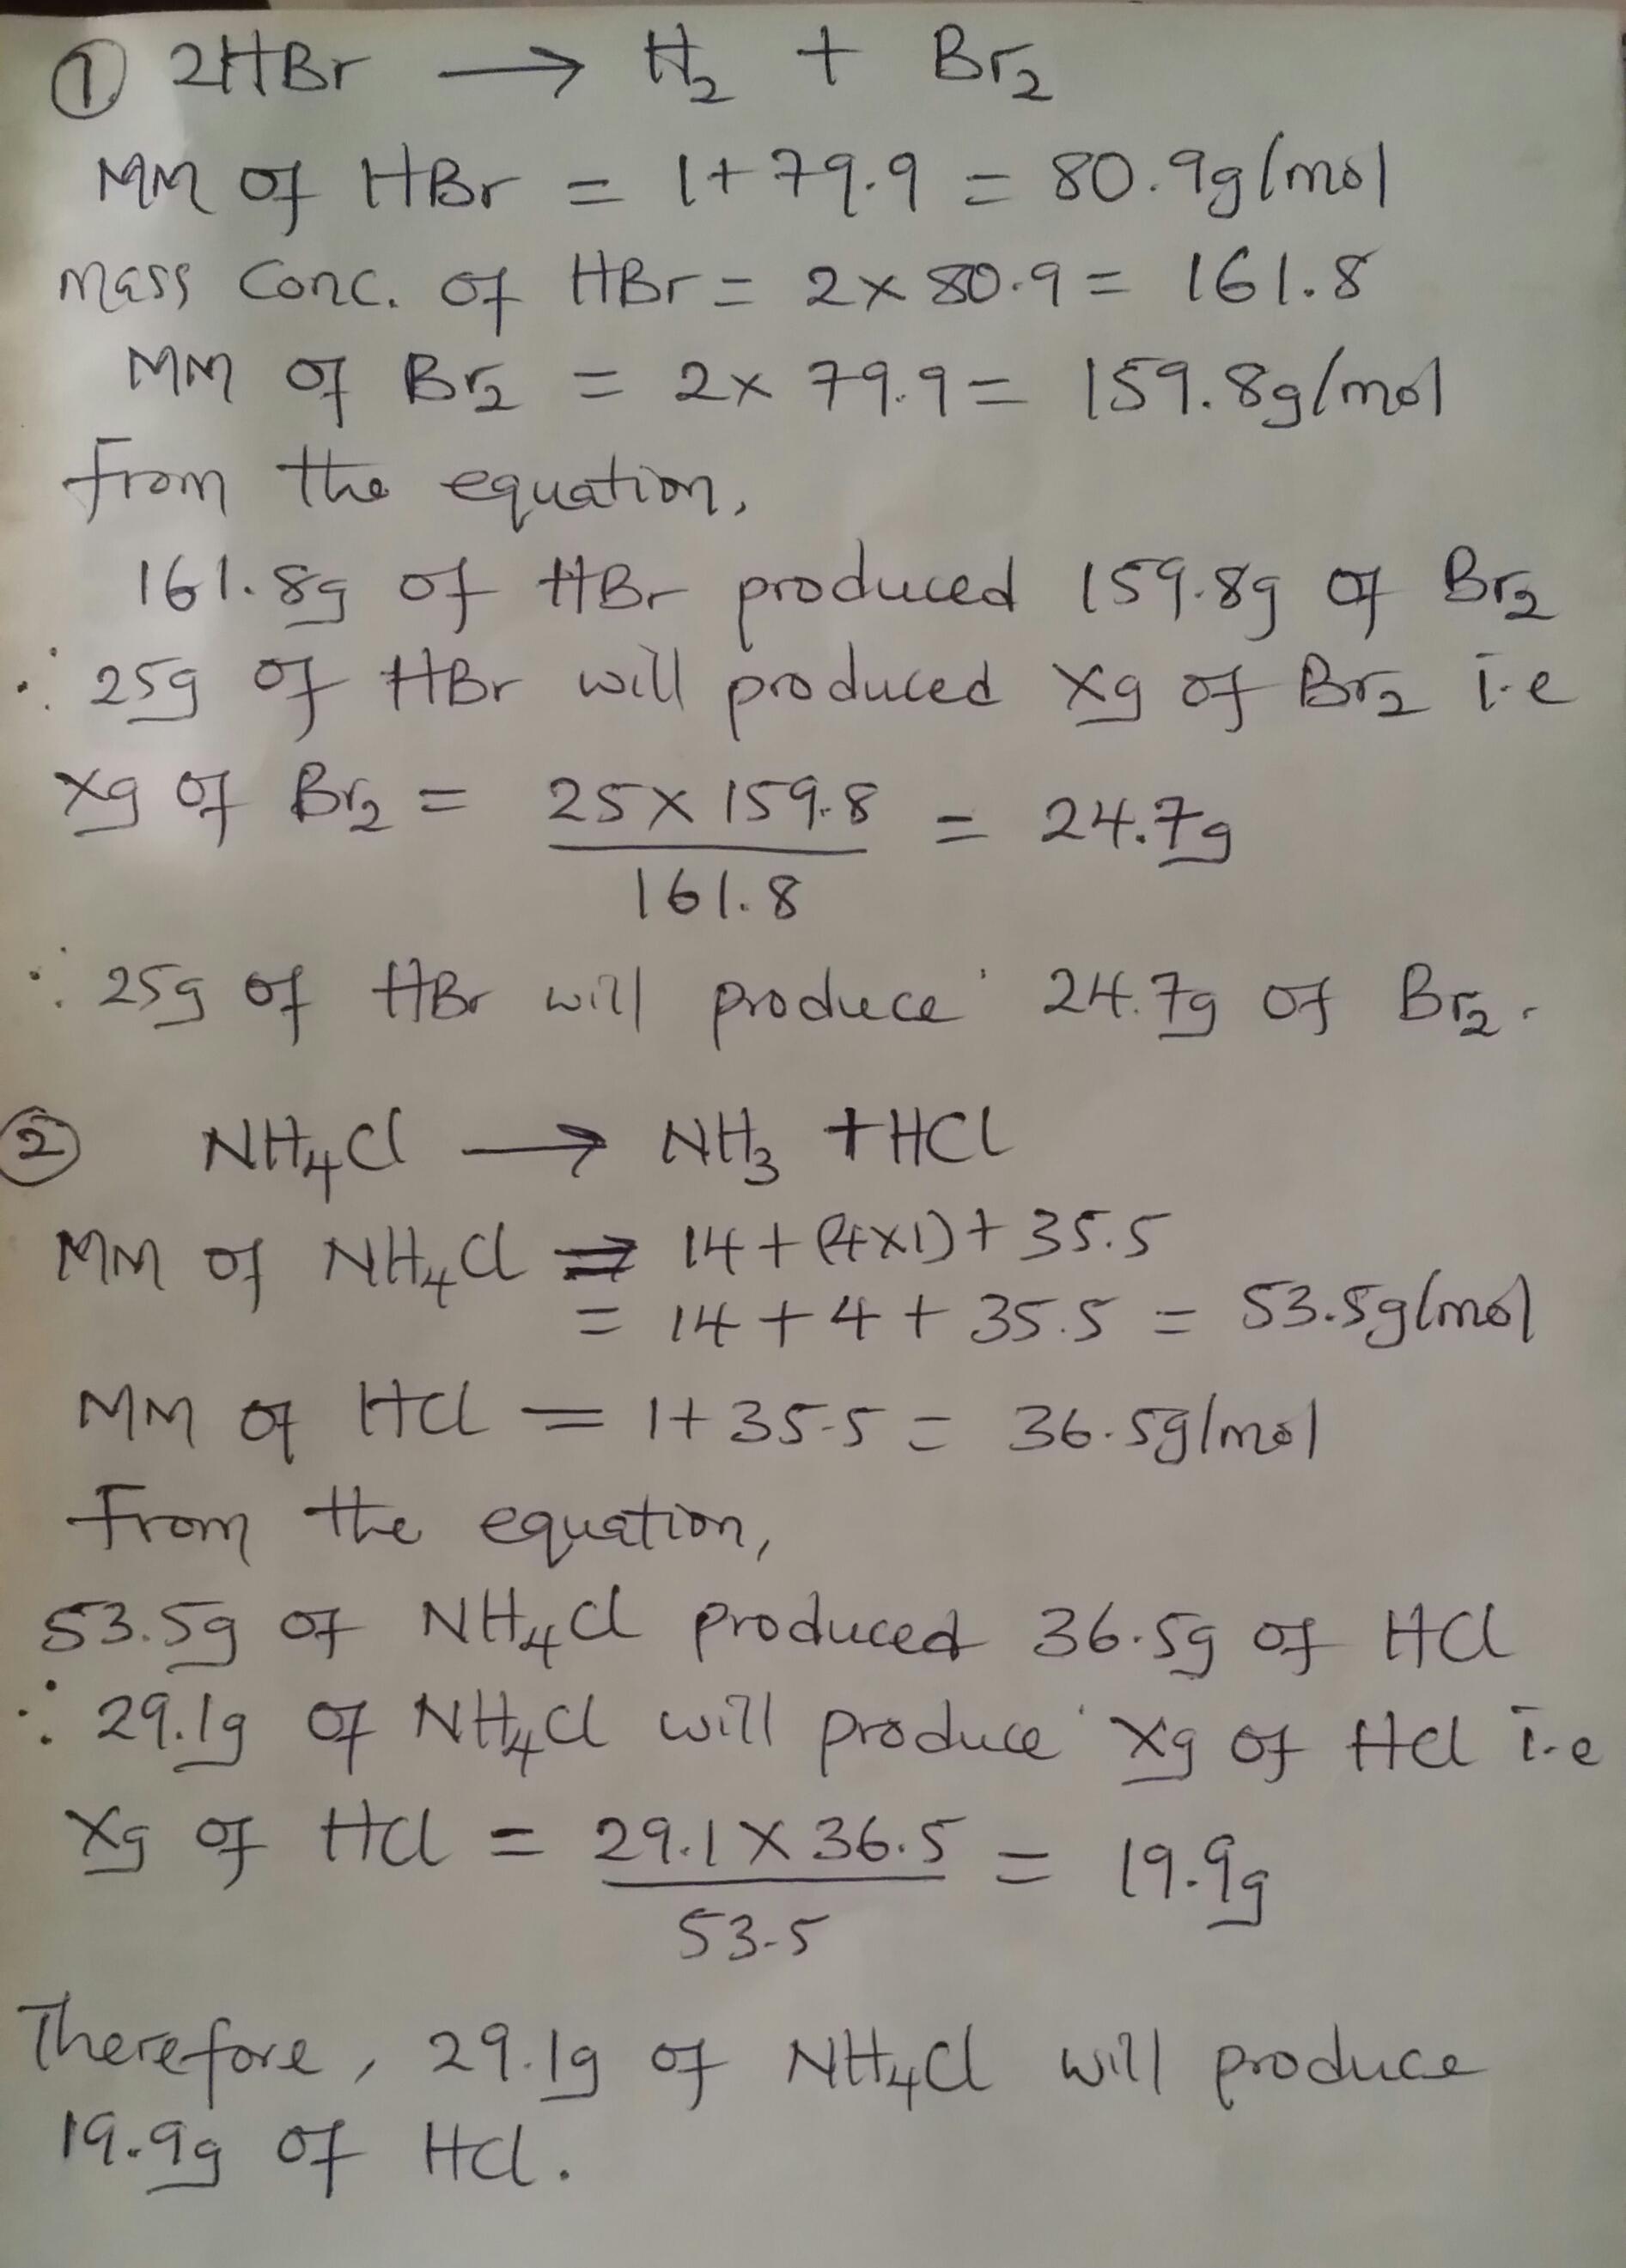 ① 2HBr → H₂ + Br₂
MM of HBr = 1+79.9 = 80.9g/mol
Mass Conc. of HBr = 2×80.9 = 161.8
MM of Br₂ = 2×79.9 = 159.8g/mol
from the equation,
161.8g of HBr produced 159.8g of Br₂
∴ 25g of HBr will produced xg of Br₂ i.e
xg of Br₂ = 25×159.8 = 24.7g
161.8
∴ 25g of HBr will produce 24.7g of Br₂.
② NH₄Cl → NH₃ + HCl
MM of NH₄Cl ⇒ 14+(4×1)+35.5
= 14+4+35.5 = 53.5g/mol
MM of HCl = 1+35.5 = 36.5g/mol
From the equation,
53.5g of NH₄Cl produced 36.5g of HCl
∴ 29.1g of NH₄Cl will produce xg of HCl i.e
xg of HCl = 29.1×36.5 = 19.9g
53.5
Therefore, 29.1g of NH₄Cl will produce
19.9g of HCl.